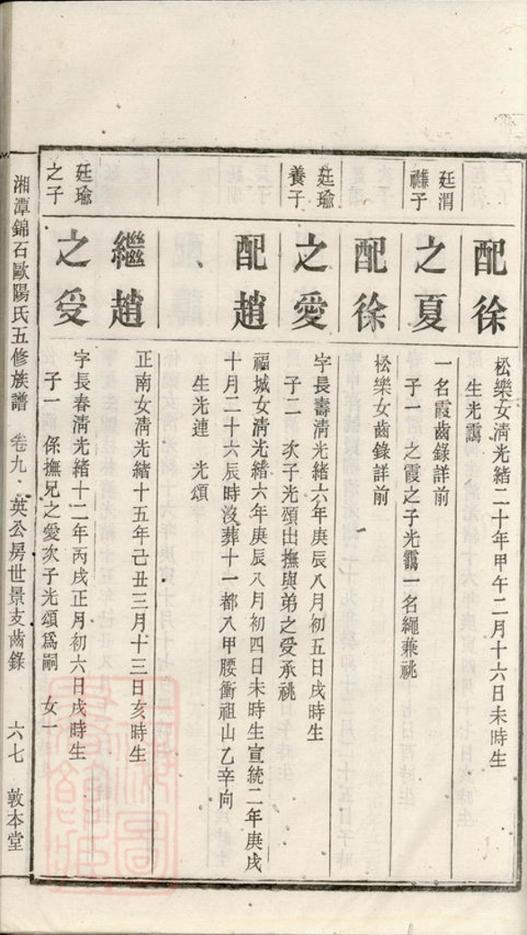 配徐
松樂女清光緒二十年甲午二月十六日未時生
生光靄
廷渭
祧子
之夏
一名霞齒錄詳前
子一 之霞之子光靄一名繩兼祧
配徐
松樂女齒錄詳前
廷瑜
養子
之愛
字長壽清光緒六年庚辰八月初五日戌時生
子二 次子光頌出撫與弟之受承祧
配趙
福城女清光緒六年庚辰八月初四日未時生宣統二年庚戌
十月二十六辰時沒葬十一都八甲腰衝祖山乙辛向
生光連 光頌
繼趙
正南女清光緒十五年己丑三月十三日亥時生
廷瑜
之子
之受
字長春清光緒十二年丙戌正月初六日戌時生
子一 係撫兄之愛次子光頌為嗣 女一
湘潭錦石歐陽氏五修族譜 卷九 英公房世景支齒錄 六七 敦本堂